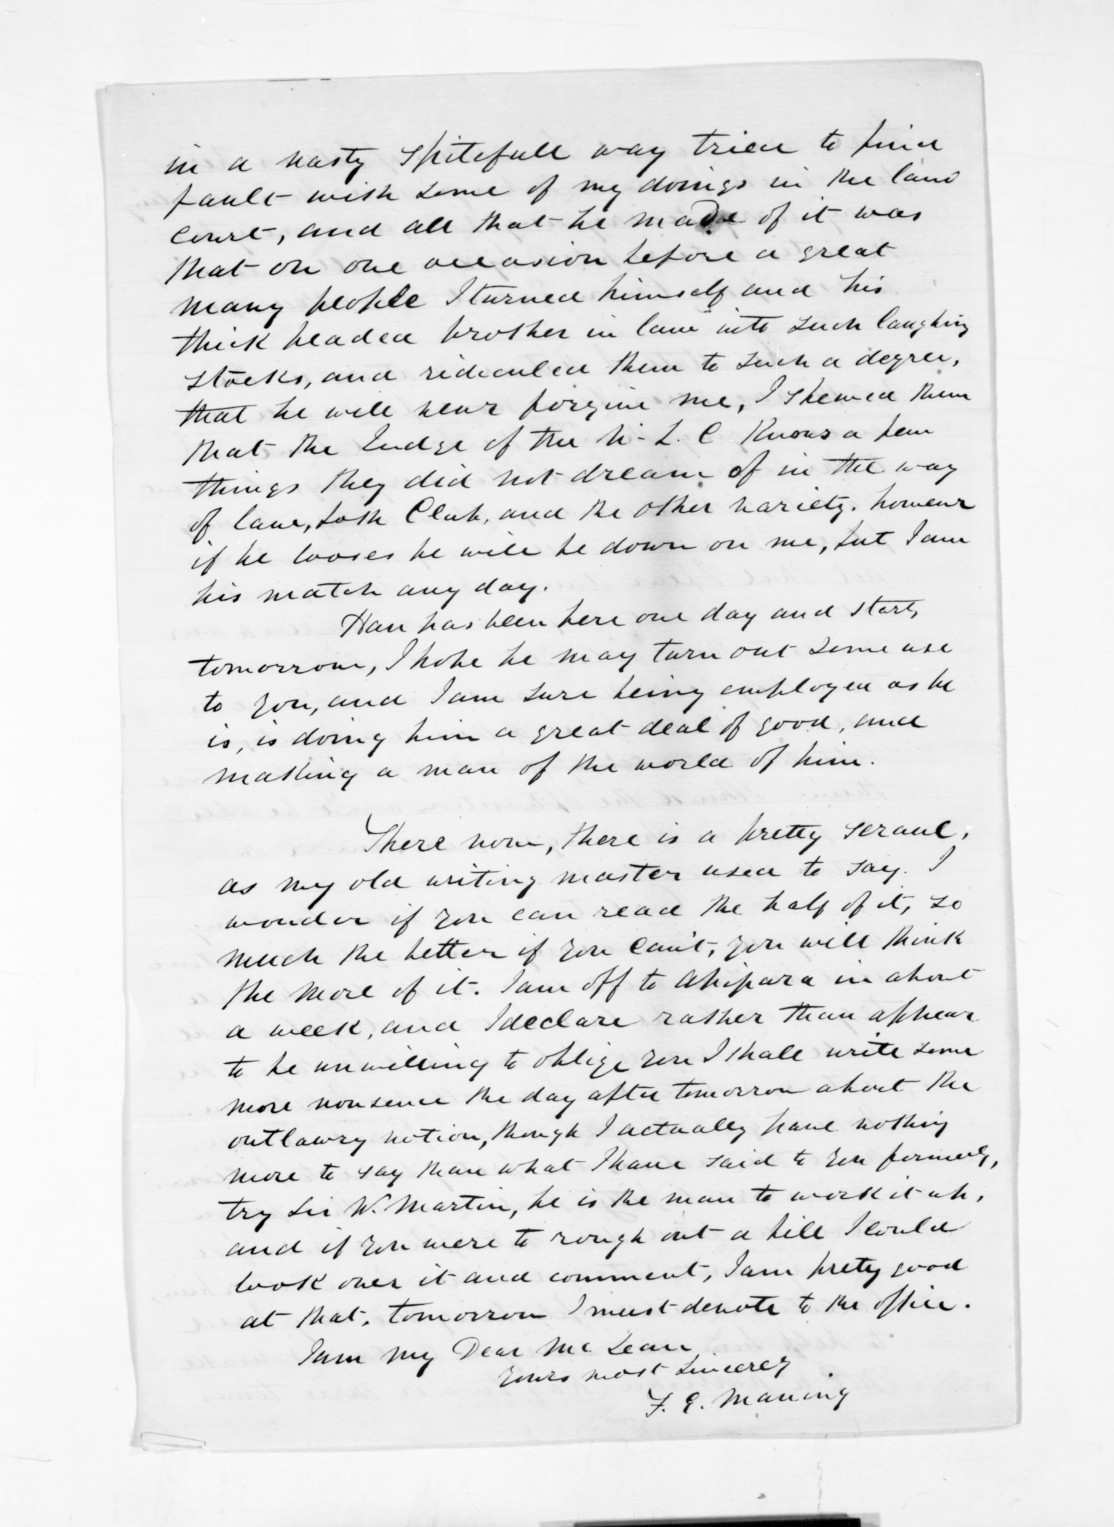 in a nasty spitefull way tried to find
fault with some of my doings in the land
Court, and all that he made of it was
that on one occasion before a great
many people I turned himself and his
thick headed brother in law into such laughing
stocks, and ridiculed them to such a degree,
that he will never forgive me, I shewed them
that the Judge of the N. L. C Knows a few
things they did not dream of in the way
of law, both Club, and the other variety. however
if he looses he will be down on me, but I am
his match any day.
Hau has been here one day and starts
tomorrow, I hope he may turn out some use
to you, and I am sure being employed as he
is, is doing him a great deal of good, and
making a man of the world of him.
There now, there is a pretty scrawl,
as my old writing master used to say. I
wonder if you can read the half of it, so
much the better if you can't, you will think
the more of it. I am off to Ahipara in about
a week, and I declare rather than appear
to be unwilling to oblige you I shall write some
more nonsence the day after tomorrow about the
outlawry notion, though I actually have nothing
more to say than what I have said to you formerly,
try Sir W. Martin, he is the man to work it up,
and if you were to rough out a bill I could
look over it and comment, I am prety good
at that. tomorrow I must devote to the office.
I am my Dear McLean
yours most sincerey
F. E. Maning